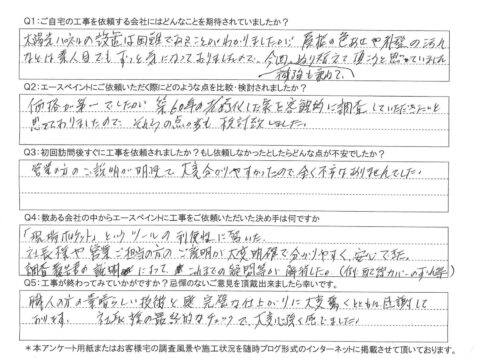 Q1:ご自宅の工事を依頼する会社にはどんなことを期待されていましたか?
太陽光パネルの設置は困難であることがわかりましたが、屋根の色あせや外壁の汚れ
などは素人目でもずっと気になっておりましたので、今回ぬり替えて頂こうと思っていました
Q2:エースペイントにご依頼いただく際にどのような点を比較・検討されましたか?
価格が第一でしたが 築 年の劣化した家を客観的に調査していただきたいと
思っておりましたので、それらの点の方も検討致しました。
Q3:初回訪問後すぐに工事を依頼されましたか?もし依頼しなかったとしたらどんな点が不安でしたか?
営業の方のご説明が明確で、大変分かりやすかったので、全く不安はありませんでした。
Q4:数ある会社の中からエースペイントに工事をご依頼いただいた決め手は何ですか
「現場ポケット」というツールの利便性に驚いた。
社長様や営業ご担当の方のご説明が大変明確で分かりやすく、安心できた。
調査報告書の説明によって、これまでの疑問等が解消した。
Q5:工事が終わってみていかがですか?忌憚のないご意見を頂戴出来ましたら幸いです。
職人の方の素晴らしい技術と 完璧な仕上がりに大変驚くとともに感謝して
おります。 社長様の最終的なチェックで、大変心強く感じました。
*本アンケート用紙またはお客様宅の調査風景や施工状況を随時ブログ形式のインターネットに掲載させて頂いております。